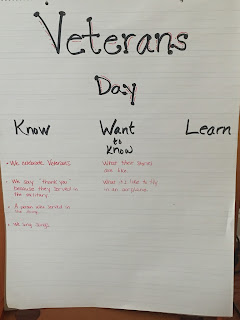 Veterans
Day
Know
Want
to
Know
Learn
• We celebrate Veterans
• We say "thank you"
because they served in
the military
• A person who served in
the
• We sing songs
What their
are like
What it's like to fly
in an airplane